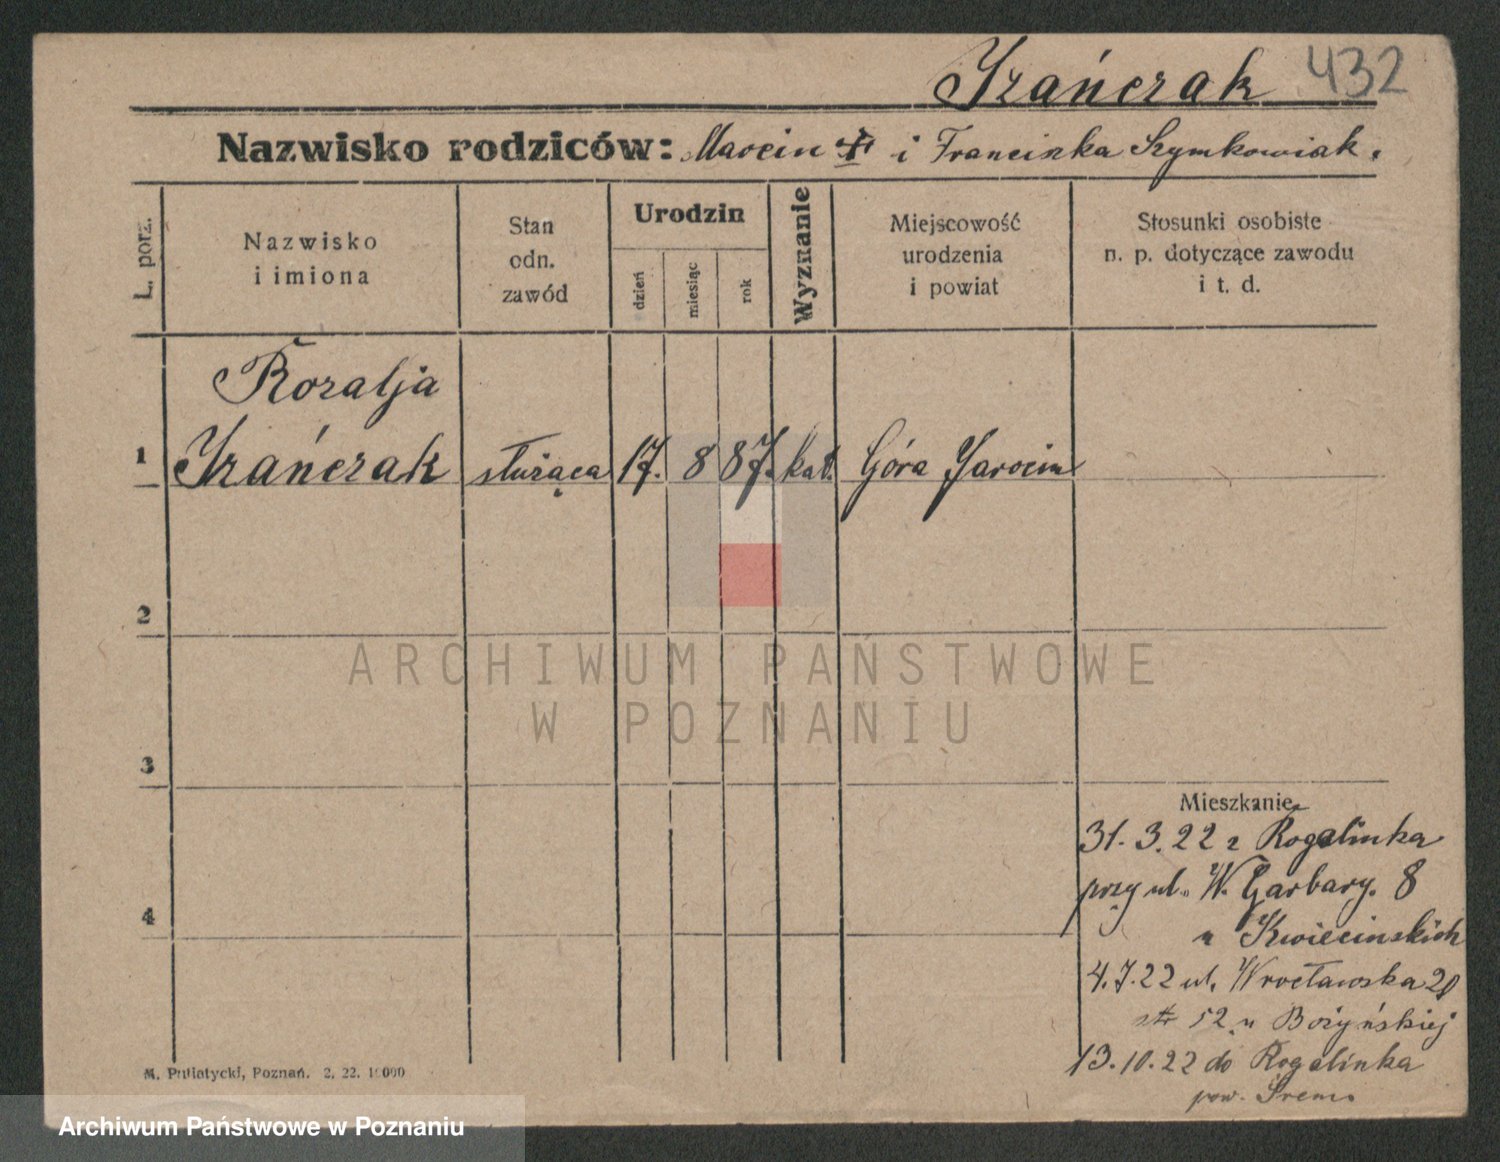 Izańczak 432
Nazwisko rodziców: Marcin ✝ i Franciszka Szymkowiak.
L. porz.
Nazwisko
i imiona
Stan
odn.
zawód
Urodzin
dzień
miesiąc
rok
Wyznanie
Miejscowość
urodzenia
i powiat
Stosunki osobiste
n. p. dotyczące zawodu
i t. d.
Rozalja
1 Izańczak służąca 17. 8 87. kat. Góra Jarocin
2
3
4
ARCHIWUM PAŃSTWOWE
W POZNANIU
Mieszkanie
31. 3. 22 z Rogalinka
przy ul. W. Garbary. 8
u Kwiecinskich
4. 7. 22 ul. Wrocławska
52 u Bożyńskiej
13. 10. 22 do Rogalinka
pow. Śrem.
M. Putiatycki, Poznań. 2. 22. 10000
Archiwum Państwowe w Poznaniu